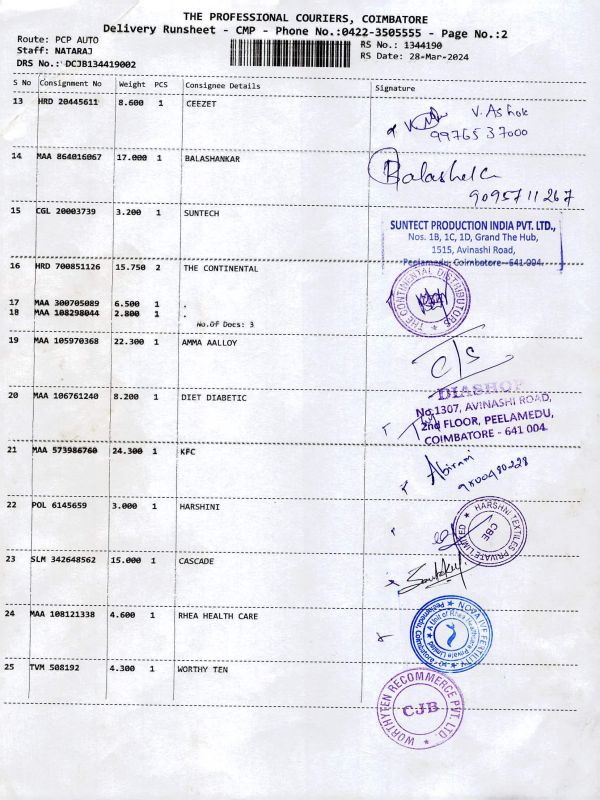 THE PROFESSIONAL COURIERS, COIMBATORE
Delivery Runsheet - CMP - Phone No.:0422-3505555 - Page No.:2
Route: PCP AUTO
RS No.: 1344190
Staff: NATARAJ
RS Date: 28-Mar-2024
DRS No.: DCJB134419002
S No Consignment No Weight PCS Consignee Details Signature
13 HRD 20445611 8.600 1 CEEZET
V.Ashok
9976537000
14 MAA 864016067 17.000 1 BALASHANKAR
9095711267
15 CGL 20003739 3.200 1 SUNTECH
SUNTECT PRODUCTION INDIA PVT. LTD.,
Nos. 1B, 1C, 1D, Grand The Hub,
1515, Avinashi Road,
Peelamedu, Coimbatore - 641 004.
16 HRD 700851126 15.750 2 THE CONTINENTAL
THE CONTINENTAL DISTRIBUTORS
17 MAA 300705089 6.500 1 .
18 MAA 108298044 2.800 1 .
No.Of Docs: 3
19 MAA 105970368 22.300 1 AMMA AALLOY
C/S
20 MAA 106761240 8.200 1 DIET DIABETIC
DIASHOP
No.1307, AVINASHI ROAD,
2nd FLOOR, PEELAMEDU,
COIMBATORE - 641 004.
21 MAA 573986760 24.300 1 KFC
Abirami
22 POL 6145659 3.000 1 HARSHINI
HARSHNI TEXTILES PRIVATE LIMITED
CBE
23 SLM 342648562 15.000 1 CASCADE
24 MAA 108121338 4.600 1 RHEA HEALTH CARE
NOVA IVF FERTILITY
A Unit of Rhea Healthcare Private Limited
25 TVM 508192 4.300 1 WORTHY TEN
WORTHYTEN RECOMMERCE PVT. LTD.
CJB